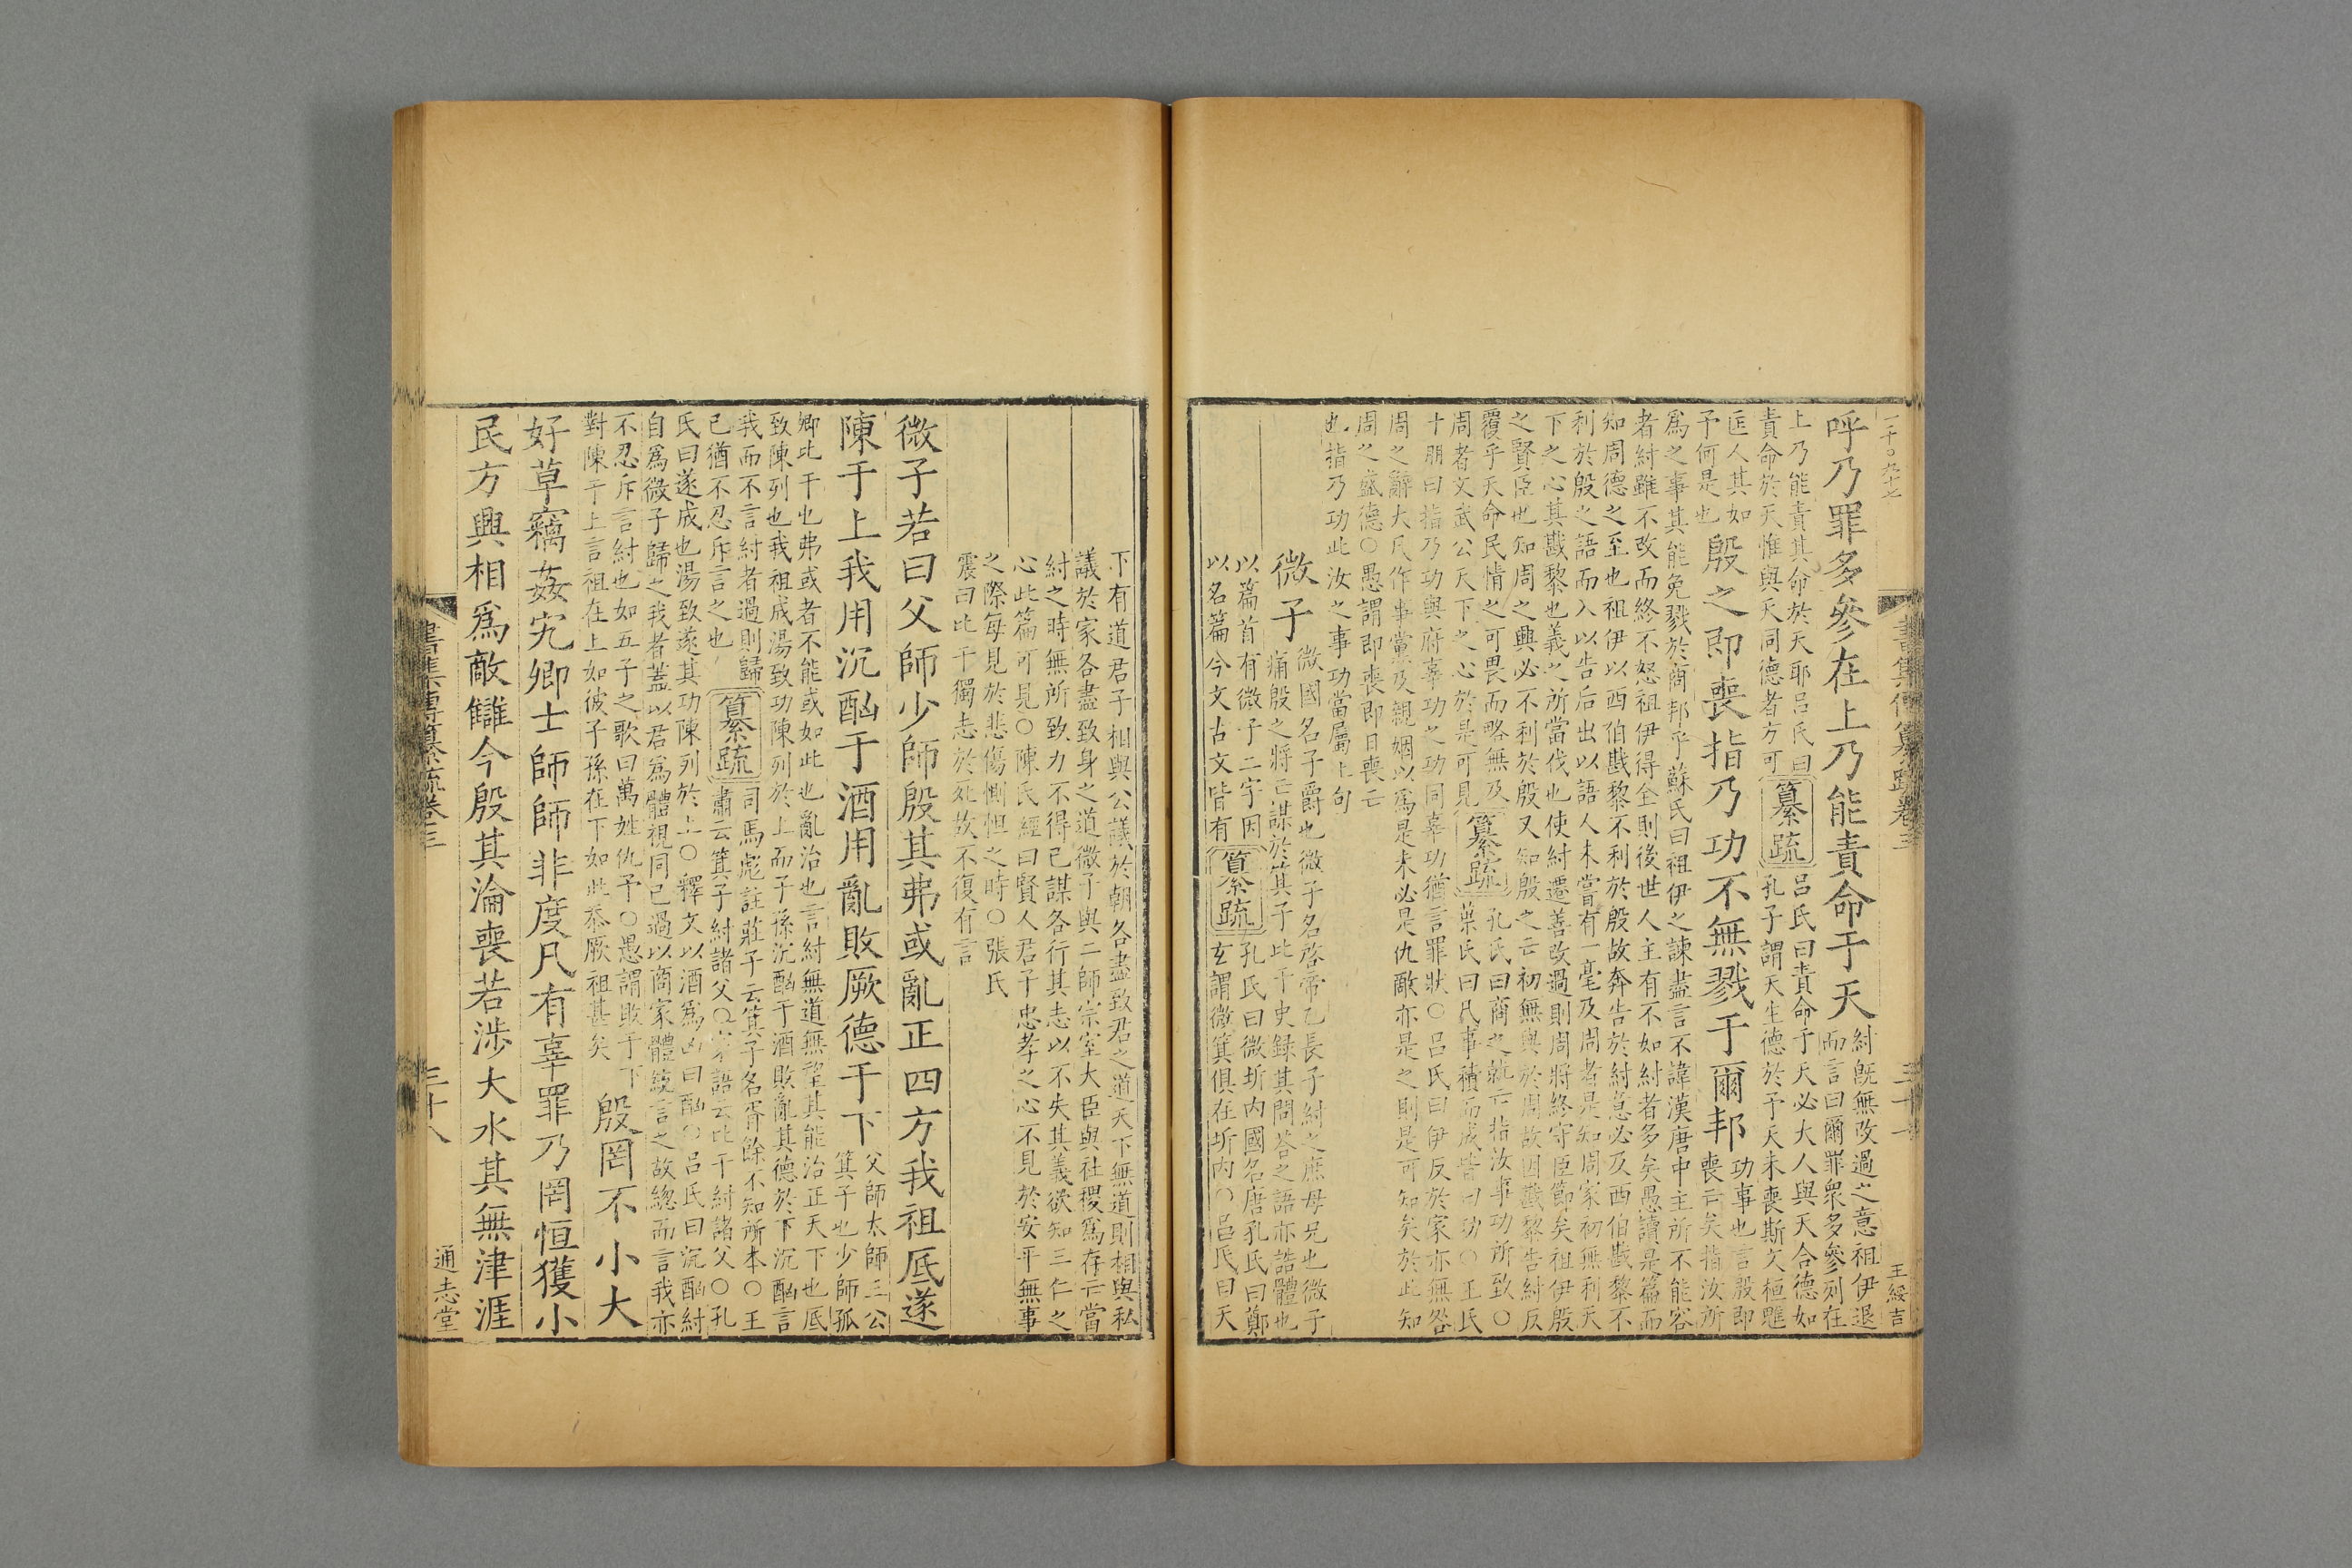 一千〇九十七
書集傳纂疏卷三
王綏吉
呼乃罪多參在上乃能責命于天
紂既無改過之意祖伊退
而言曰爾罪衆多參列在
上乃能責其命於天耶呂氏曰
責命於天惟與天同德者方可
纂疏
呂氏曰責命于天必大人與天合德如
孔子謂天生德於予天未喪斯文桓魋
匡人其如
予何是也
殷之即喪指乃功不無戮于爾邦
功事也言殷即
喪亡矣指汝所
爲之事其能免戮於商邦乎蘇氏曰祖伊之諫盡言不諱漢唐中主所不能容
者紂雖不改而終不怒祖伊得全則後世人主有不如紂者多矣愚讀是篇而
知周德之至也祖伊以西伯戡黎不利於殷故奔告於紂意必及西伯戡黎不
利於殷之語而入以告后出以語人未嘗有一毫及周者是知周家初無利天
下之心其戡黎也義之所當伐也使紂遷善改過則周將終守臣節矣祖伊殷
之賢臣也知周之興必不利於殷又知殷之亡初無與於周故因戡黎告紂反
覆乎天命民情之可畏而略無及
周者文武公天下之心於是可見
纂疏
孔氏曰商之就亡指汝事功所致○
葉氏曰凡事積而成皆曰功○王氏
十朋曰指乃功與府辜功之功同辜功猶言罪狀○呂氏曰伊反於家亦無咎
周之辭大凡作事黨及親姻以爲是未必是仇敵亦是之則是可知矣於此知
周之盛德○愚謂即喪即日喪亡
也指乃功此汝之事功當屬上句
微子
微國名子爵也微子名啓帝乙長子紂之庶母兄也微子
痛殷之將亡謀於箕子比干史録其問答之語亦誥體也
以篇首有微子二字因
以名篇今文古文皆有
纂疏
孔氏曰微圻內國名唐孔氏曰鄭
玄謂微箕俱在圻內○呂氏曰天
下有道君子相與公議於朝各盡致君之道天下無道則相與私
議於家各盡致身之道微子與二師宗室大臣與社稷爲存亡當
紂之時無所致力不得已謀各行其志以不失其義欲知三仁之
心此篇可見○陳氏經曰賢人君子忠孝之心不見於安平無事
之際每見於悲傷惻怛之時○張氏
震曰比干獨志於死故不復有言
微子若曰父師少師殷其弗或亂正四方我祖厎遂
陳于上我用沉酗于酒用亂敗厥德于下
父師太師三公
箕子也少師孤
卿比干也弗或者不能或如此也亂治也言紂無道無望其能治正天下也厎
致陳列也我祖成湯致功陳列於上而子孫沉酗于酒敗亂其德於下沉酗言
我而不言紂者過則歸
己猶不忍斥言之也
纂疏
司馬彪註莊子云箕子名胥餘不知所本○王
肅云箕子紂諸父○家語云比干紂諸父○孔
氏曰遂成也湯致遂其功陳列於上○釋文以酒爲凶曰酗○呂氏曰沉酗紂
自爲微子歸之我者蓋以君爲體視同己過以商家體統言之故總而言我亦
不忍斥言紂也如五子之歌曰萬姓仇予○愚謂敗于下
對陳于上言祖在上如彼子孫在下如此忝厥祖甚矣
殷罔不小大
好草竊姦宄卿士師師非度凡有辜罪乃罔恒獲小
民方興相爲敵讎今殷其淪喪若涉大水其無津涯
書集傳纂疏卷三
三十八
通志堂